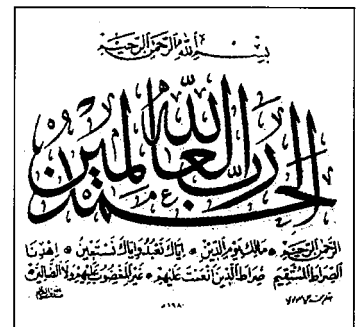 بسم الله الرحمن الرحيم
الحمد لله رب العالمين
الرحمن الرحيم مالك يوم الدين إياك نعبد وإياك نستعين اهدنا
الصراط المستقيم صراط الذين أنعمت عليهم غير المغضوب عليهم ولا الضالين
١٩٨٠م